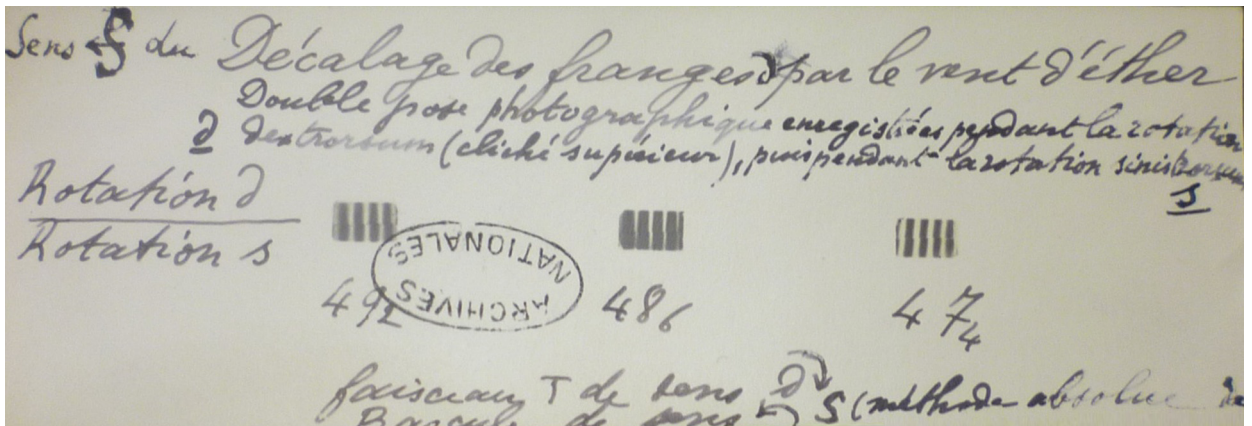 Sens S du Décalage des franges par le vent d'éther
Double pose photographique enregistrées pendant la rotation
d dextrorsum (cliché supérieur), puis pendant la rotation sinistrorsum
s
Rotation d
Rotation s
ARCHIVES NATIONALES
497 486 474
faisceau T de sens d S (méthode absolue de
Bascule de sens